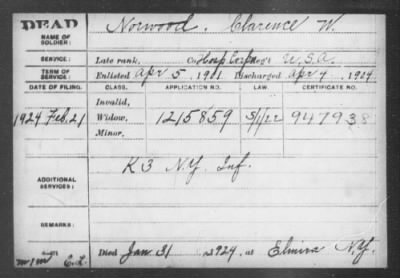 DEAD
NAME OF SOLDIER: Norwood, Clarence W.
SERVICE: Late rank, Co. Hosp Corps Reg't U.S.A.
TERM OF SERVICE: Enlisted Apr 5, 1901 Discharged Apr 4, 1904.
DATE OF FILING. CLASS. APPLICATION NO. LAW. CERTIFICATE NO.
Invalid,
1924 Feb. 21 Widow, 1215859 5/1/22 947938
Minor,
ADDITIONAL SERVICES: K 3 N.Y. Inf.
REMARKS:
Died Jan. 31 1924, at Elmira N.Y.